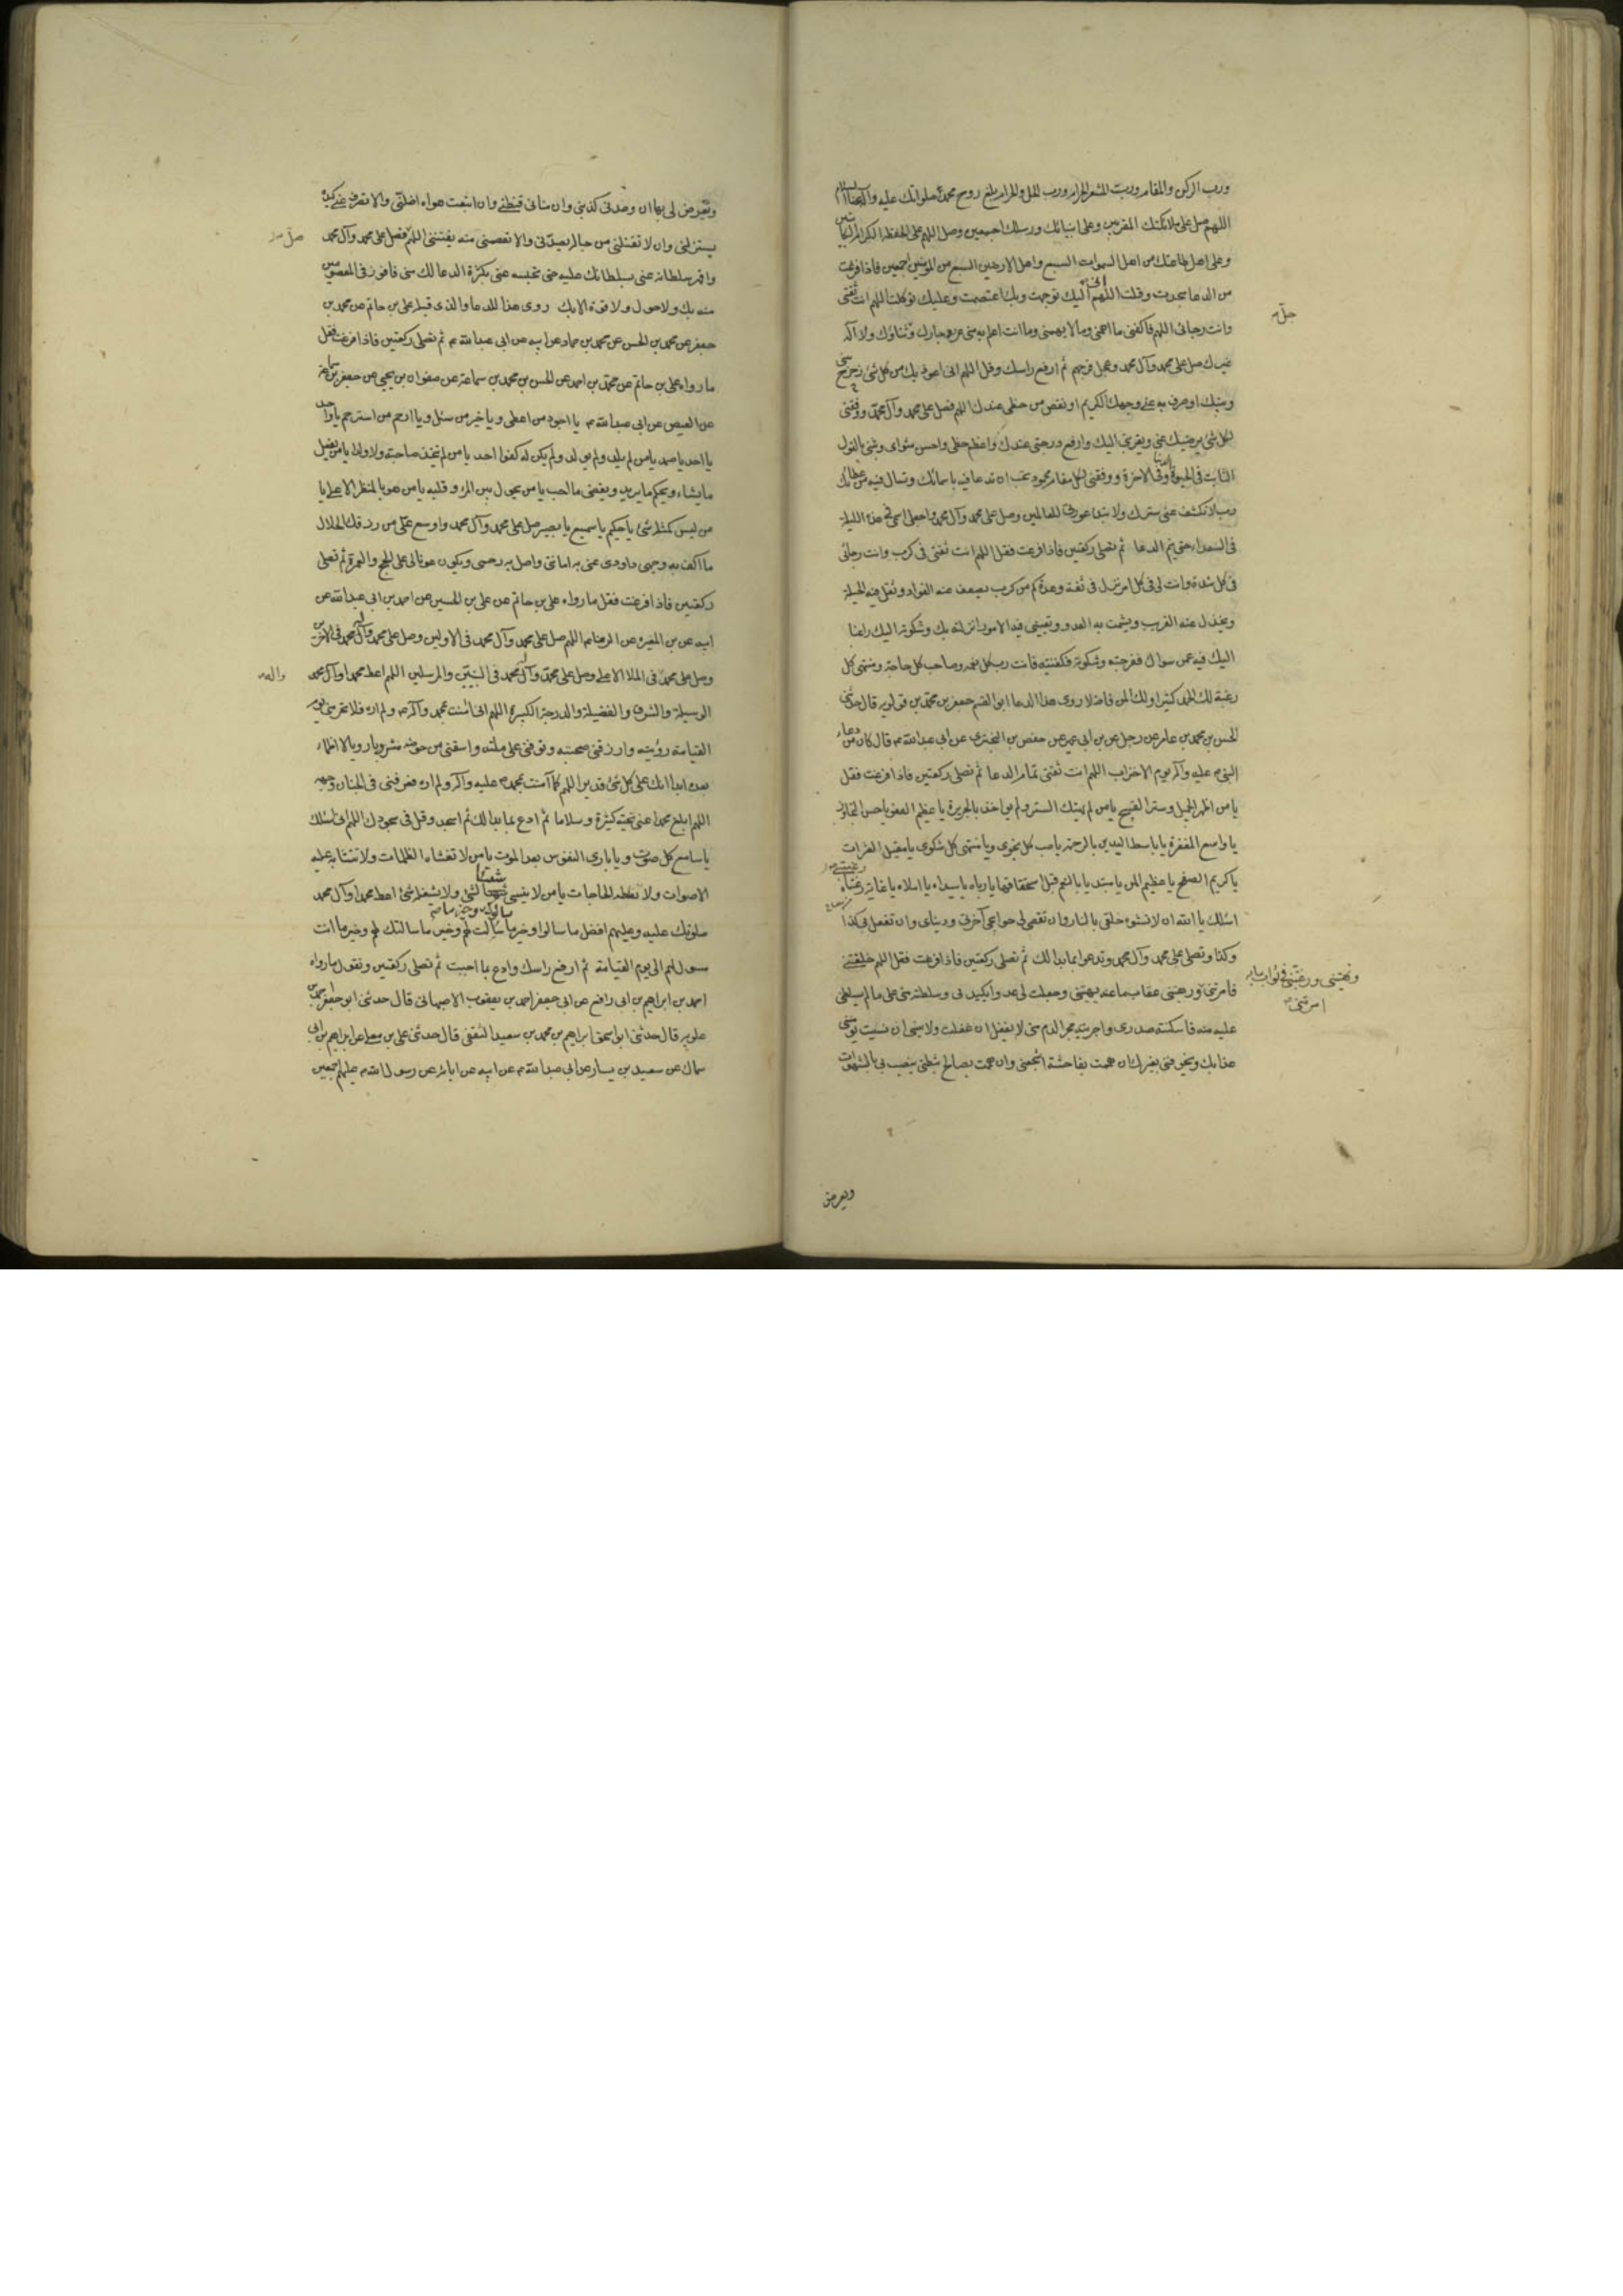 ورب الركن والمقام ورب المشعر الحرام ورب الحل والحرام بلغ روح محمد صلواتك عليه وآله عنا السلام
اللهم صل على ملائكتك المقربين وعلى انبيائك ورسلك اجمعين وصل اللهم على الحفظة الكرام الكاتبين
وعلى اهل طاعتك من اهل السموات السبع واهل الارضين السبع من المؤمنين اجمعين فاذا فرغت
من الدعا سجدت وقلت اللهم اليك توجهت وبك اعتصمت وعليك توكلت اللهم انت ثقتى
وانت رجائى اللهم فاكفنى ما اهمنى وما لا يهمنى وما انت اعلم به منى عز جارك وثناؤك ولا اله
غيرك صل على محمد وآل محمد وعجل فرجهم ثم ارفع راسك وقل اللهم انى اعوذ بك من كل شئ زحزح بينى
وبينك او صرف به عنى وجهك الكريم او نقص من حظى عندك اللهم فصل على محمد وآل محمد ووفقنى
لكل شئ يرضيك عنى ويقربنى اليك وارفع درجتى عندك واعظم حظى واحسن مثواى وثبتنى بالقول
الثابت فى الحيوة الدنيا وفى الاخرة ووفقنى لكل مقام محمود تحب ان تدعا فيه باسمائك وتسال فيه من عطائك
رب لا تكشف عنى سترك ولا تبد عورتى للعالمين وصل على محمد وآل محمد واجعل اسمى فى هذه الليلة
فى السعداء حتى يتم الدعا ثم تصلى ركعتين فاذا فرغت فقل اللهم انت ثقتى فى كرب وانت رجائى
فى كل شدة وانت لى فى كل امر نزل فى ثقة وعدة كم من كرب يضعف عنه الفواد وتقل فيه الحيلة
ويخذل عنه القريب ويشمت به العدو وتعيينى فيه الامور انزلته بك وشكوته اليك راغبا
اليك فيه عمن سواك ففرجته وشكوته فكفيتنيه فانت رب كل نعمه وصاحب كل حاجة ومنتهى كل
رغبة لك الحمد كثيرا ولك المن فاضلا روى هذا الدعا ابو القسم جعفر بن محمد بن قولويه قال حدثنى
الحسن بن محمد بن عامر عن رجل عن بن ابى عمير عن حفص بن البخترى عن ابى عبد الله ع قال كان من دعاء
النبى ص عليه وآله يوم الاحزاب اللهم انت ثقتى تمام الدعا ثم تصلى ركعتين فاذا فرغت فقل
يا من اظهر الجميل وستر القبيح يا من لم يهتك الستر ولم يواخذ بالجريرة يا عظيم العفو يا حسن التجاوز
يا واسع المغفرة يا باسط اليدين بالرحمة يا صاحب كل نجوى ويا منتهى كل شكوى يا مقيل العثرات
يا كريم الصفح يا عظيم المن يا مبتديا بالنعم قبل استحقاقها يا رباه يا سيداه يا املاه يا غاية رغبتاه
اسئلك يا الله ان لا تشوه خلقى بالنار وان تقضى لى حوائج آخرتى ودنياى وان تفعل بى كذا
وكذا وتصلى على محمد وآل محمد وتدعوا بما بدا لك ثم تصلى ركعتين فاذا فرغت فقل اللهم خلقتنى
فامرتنى ورهبتنى عقاب ما عنه نهيتنى وجعلت لى عدوا يكيدنى وسلطته منى على ما لم تسلطنى
عليه منه فاسكنته صدرى واجريته مجرى الدم منى لا يغفل ان غفلت ولا ينسى ان نسيت يؤمننى
عذابك ويخوفنى بغيرك ان هممت بفاحشة شجعنى وان هممت بصالح ثبطنى ينصب لى بالشهوات
جل
ونهيتنى ورغبتنى فى ثواب ما به
امرتنى
ويعرض
ويعرض لى بها ان وعدنى كذبنى وان منانى قنطنى وان اتبعت هواه اضلنى والا تصرف عنى كيده
يستزلنى وان لا تفلتنى من حبائله يصدنى والا تعصمنى منه يفتننى اللهم فصل على محمد وآل محمد
واقهر سلطانه عنى بسلطانك عليه حتى تحبسه عنى بكثرة الدعا لك منى فافوز فى المعصومين
منه بك ولا حول ولا قوة الا بك روى هذا الدعا والذى قبله على بن حاتم عن محمد بن
جعفر عن محمد بن الحسن عن محمد بن حماد عن ابيه عن ابى عبد الله ع ثم تصلى ركعتين فاذا فرغت فقل
ما رواه على بن حاتم عن محمد بن احمد عن الحسن بن محمد بن سماعة عن صفوان بن يحيى عن جعفر بن سماعة
عن العيص عن ابى عبد الله ع يا اجود من اعطى ويا خير من سئل ويا ارحم من استرحم يا واحد
يا احد يا صمد يا من لم يلد ولم يولد ولم يكن له كفوا احد يا من لم يتخذ صاحبة ولا ولدا يا من يفعل
ما يشاء ويحكم ما يريد ويقضى ما احب يا من يحول بين المرء وقلبه يا من هو بالمنظر الاعلى يا
من ليس كمثله شئ يا حكيم يا سميع يا بصير صل على محمد وآل محمد واوسع على من رزقك الحلال
ما اكف به وجهى واودى عنى به امانتى واصل به رحمى ويكون عونا لى على الحج والعمرة ثم تصلى
ركعتين فاذا فرغت فقل ما رواه على بن حاتم عن على بن الحسين عن احمد بن ابى عبد الله عن
ابيه عن بن المغيرة عن الرضا ع اللهم صل على محمد وآل محمد فى الاولين وصل على محمد وآل محمد فى الاخرين
وصل على محمد فى الملا الاعلى وصل على محمد وآل محمد فى النبيين والمرسلين اللهم اعط محمدا وآل محمد
الوسيلة والشرف والفضيلة والدرجة الكبيرة اللهم انى امنت بمحمد وآله ص ولم اره فلا تحرمنى يوم
القيامة رؤيته وارزقنى صحبته وتوفنى على ملته واسقنى من حوضه مشربا رويا لا اظماء
بعده ابدا انك على كل شئ قدير اللهم كما آمنت بمحمد ص عليه وآله ولم اره فعرفنى فى الجنان وجهه
اللهم ابلغ محمدا عنى تحية كثيرة وسلاما ثم ادع بما بدا لك ثم اسجد وقل فى سجودك اللهم انى اسئلك
يا سامع كل صوت ويا بارى النفوس بعد الموت يا من لا تغشاه الظلمات ولا تتشابه عليه
الاصوات ولا تغلطه الحاجات يا من لا ينسى شيئا لشئ ولا يشغله شئ اعط محمدا وآل محمد
صلوتك عليه وعليهم افضل ما سالوا وخير ما سالت لهم وخير ما سالتك لهم وخير ما انت
مسول لهم الى يوم القيامة ثم ارفع راسك وادع بما احببت ثم تصلى ركعتين وتقول ما رواه
احمد بن ابراهيم بن ابى رافع عن ابى جعفر احمد بن يعقوب الاصبهانى قال حدثنى ابو جعفر احمد بن
علويه قال حدثنى ابو اسحق ابراهيم بن محمد بن سعيد الثقفى قال حدثنى على بن معلى عن ابراهيم بن ابى
سماك عن سعيد بن يسار عن ابى عبد الله ع عن ابيه عن ابائه عن رسول الله ص عليهم اجمعين